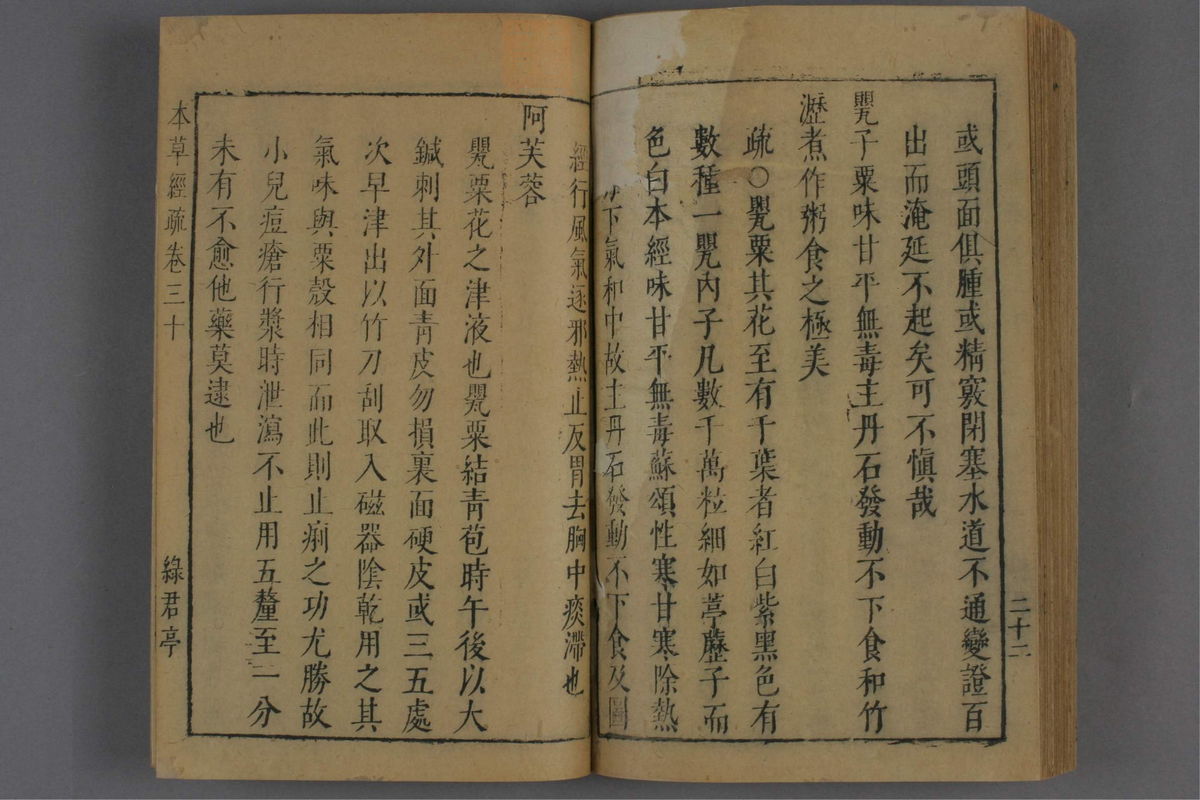 或頭面俱腫或精竅閉塞水道不通變證百
出而淹延不起矣可不慎哉
甖子粟味甘平無毒主丹石發動不下食和竹
瀝煮作粥食之極美
疏○甖粟其花至有千葉者紅白紫黑色有
數種一甖內子凡數千萬粒細如葶藶子而
色白本經味甘平無毒蘇頌性寒甘寒除熱
下氣和中故主丹石發動不下食及圖
二十二
經行風氣逐邪熱止反胃去胸中痰滯也
阿芙蓉
甖粟花之津液也甖粟結青苞時午後以大
鍼刺其外面青皮勿損裏面硬皮或三五處
次早津出以竹刀刮取入磁器陰乾用之其
氣味與粟殼相同而此則止痢之功尤勝故
小兒痘瘡行漿時泄瀉不止用五釐至一分
未有不愈他藥莫逮也
本草經疏卷三十
綠君亭